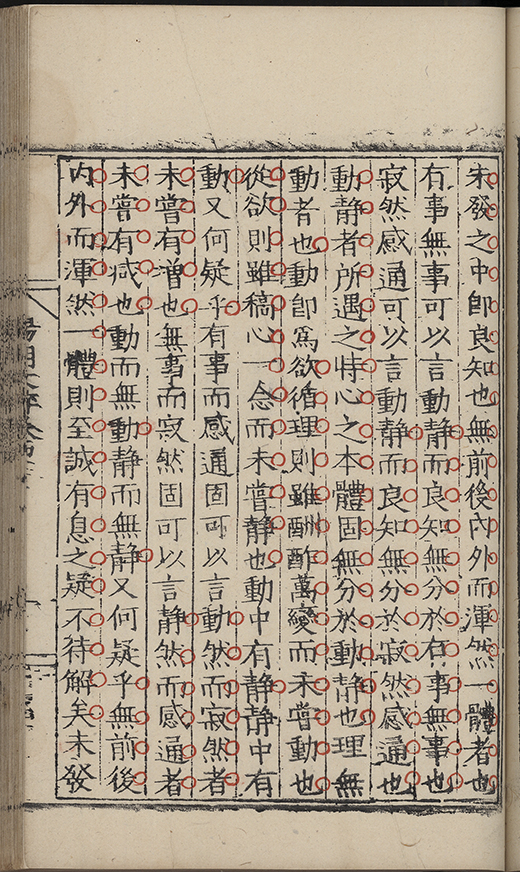 未發之中即良知也無前後內外而渾然一體者也
有事無事可以言動静而良知無分於有事無事也
寂然感通可以言動静而良知無分於寂然感通也
動静者所遇之時心之本體固無分於動静也理無
動者也動即爲欲循理則雖酬酢萬變而未嘗動也
從欲則雖稿心一念而未嘗静也動中有静静中有
動又何疑乎有事而感通固可以言動然而寂然者
未嘗有增也無事而寂然固可以言静然而感通者
未嘗有减也動而無動静而無静又何疑乎無前後
内外而渾然一體則至誠有息之疑不待解矣未發